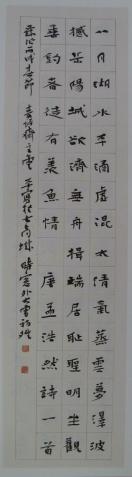 八月湖水平涵虛混太清氣蒸雲夢澤波
撼岳陽城欲濟無舟楫端居恥聖明坐觀
垂釣者徒有羨魚情 唐孟浩然詩一首